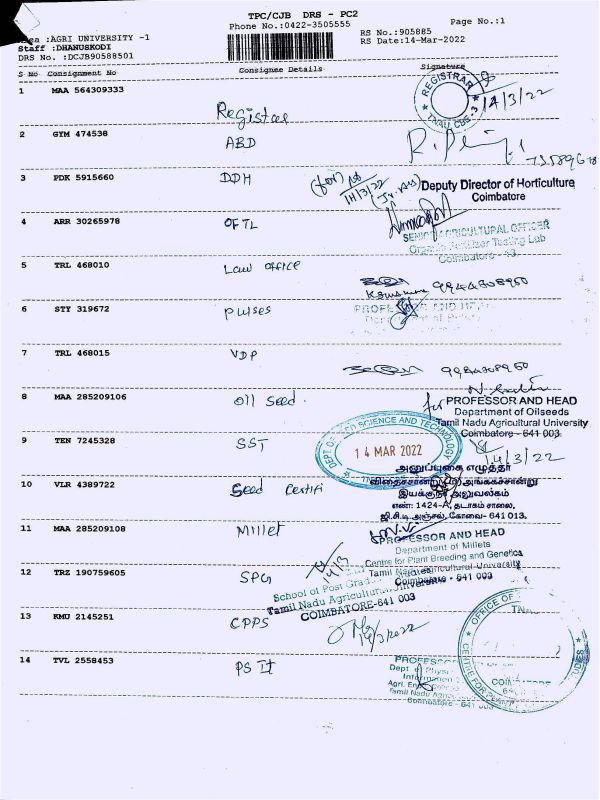 TPC/CJB DRS - PC2
Phone No.:0422-3505555
Page No.:1
:AGRI UNIVERSITY -1
Staff :DHANUSKODI
DRS No. :DCJB90588501
RS No.:905885
RS Date:14-Mar-2022
S No Consignment No Consignee Details Signature
1 MAA 564309333 Registrar
REGISTRAR
TNAU, CBE - 3
14/3/22
2 GYM 474538 ABD
3 PDK 5915660 DDH
(for)
14/3/22
Deputy Director of Horticulture
Coimbatore
4 ARR 30265978 OFTL
SENIOR AGRICULTURAL OFFICER
Organic Fertilizer Testing Lab
Coimbatore - 43.
5 TRL 468010 Law office
9944308950
6 STY 319672 pulses
PROFESSOR AND HEAD
7 TRL 468015 VDP
9944308950
8 MAA 285209106 Oil Seed.
for PROFESSOR AND HEAD
Department of Oilseeds
Tamil Nadu Agricultural University
Coimbatore - 641 003.
14/3/22
9 TEN 7245328 SST
DEPT OF SEED SCIENCE AND TECHNOLOGY
14 MAR 2022
அனுப்புகை எழுத்தர்
விதைச்சான்று அங்ககச்சான்று
இயக்குநர் அலுவலகம்
எண்: 1424-A, தடாகம் சாலை,
ஜி.சி.டி அஞ்சல், கோவை- 641 013.
10 VLR 4389722 Seed Certifi
11 MAA 285209108 Millet
PROFESSOR AND HEAD
Department of Millets
Centre for Plant Breeding and Genetics
Tamil Nadu Agricultural University
Coimbatore - 641 003
12 TRZ 190759605 SPG
14/3
School of Post Grad
Tamil Nadu Agricultural University
COIMBATORE-641 003
13 KMU 2145251 CPPS
14/3/2022
OFFICE OF
14 TVL 2558453 PS II
PROFESSOR
Dept of Physi
Information
Agri. En
Tamil Nadu Agri
Coimbatore - 641 003